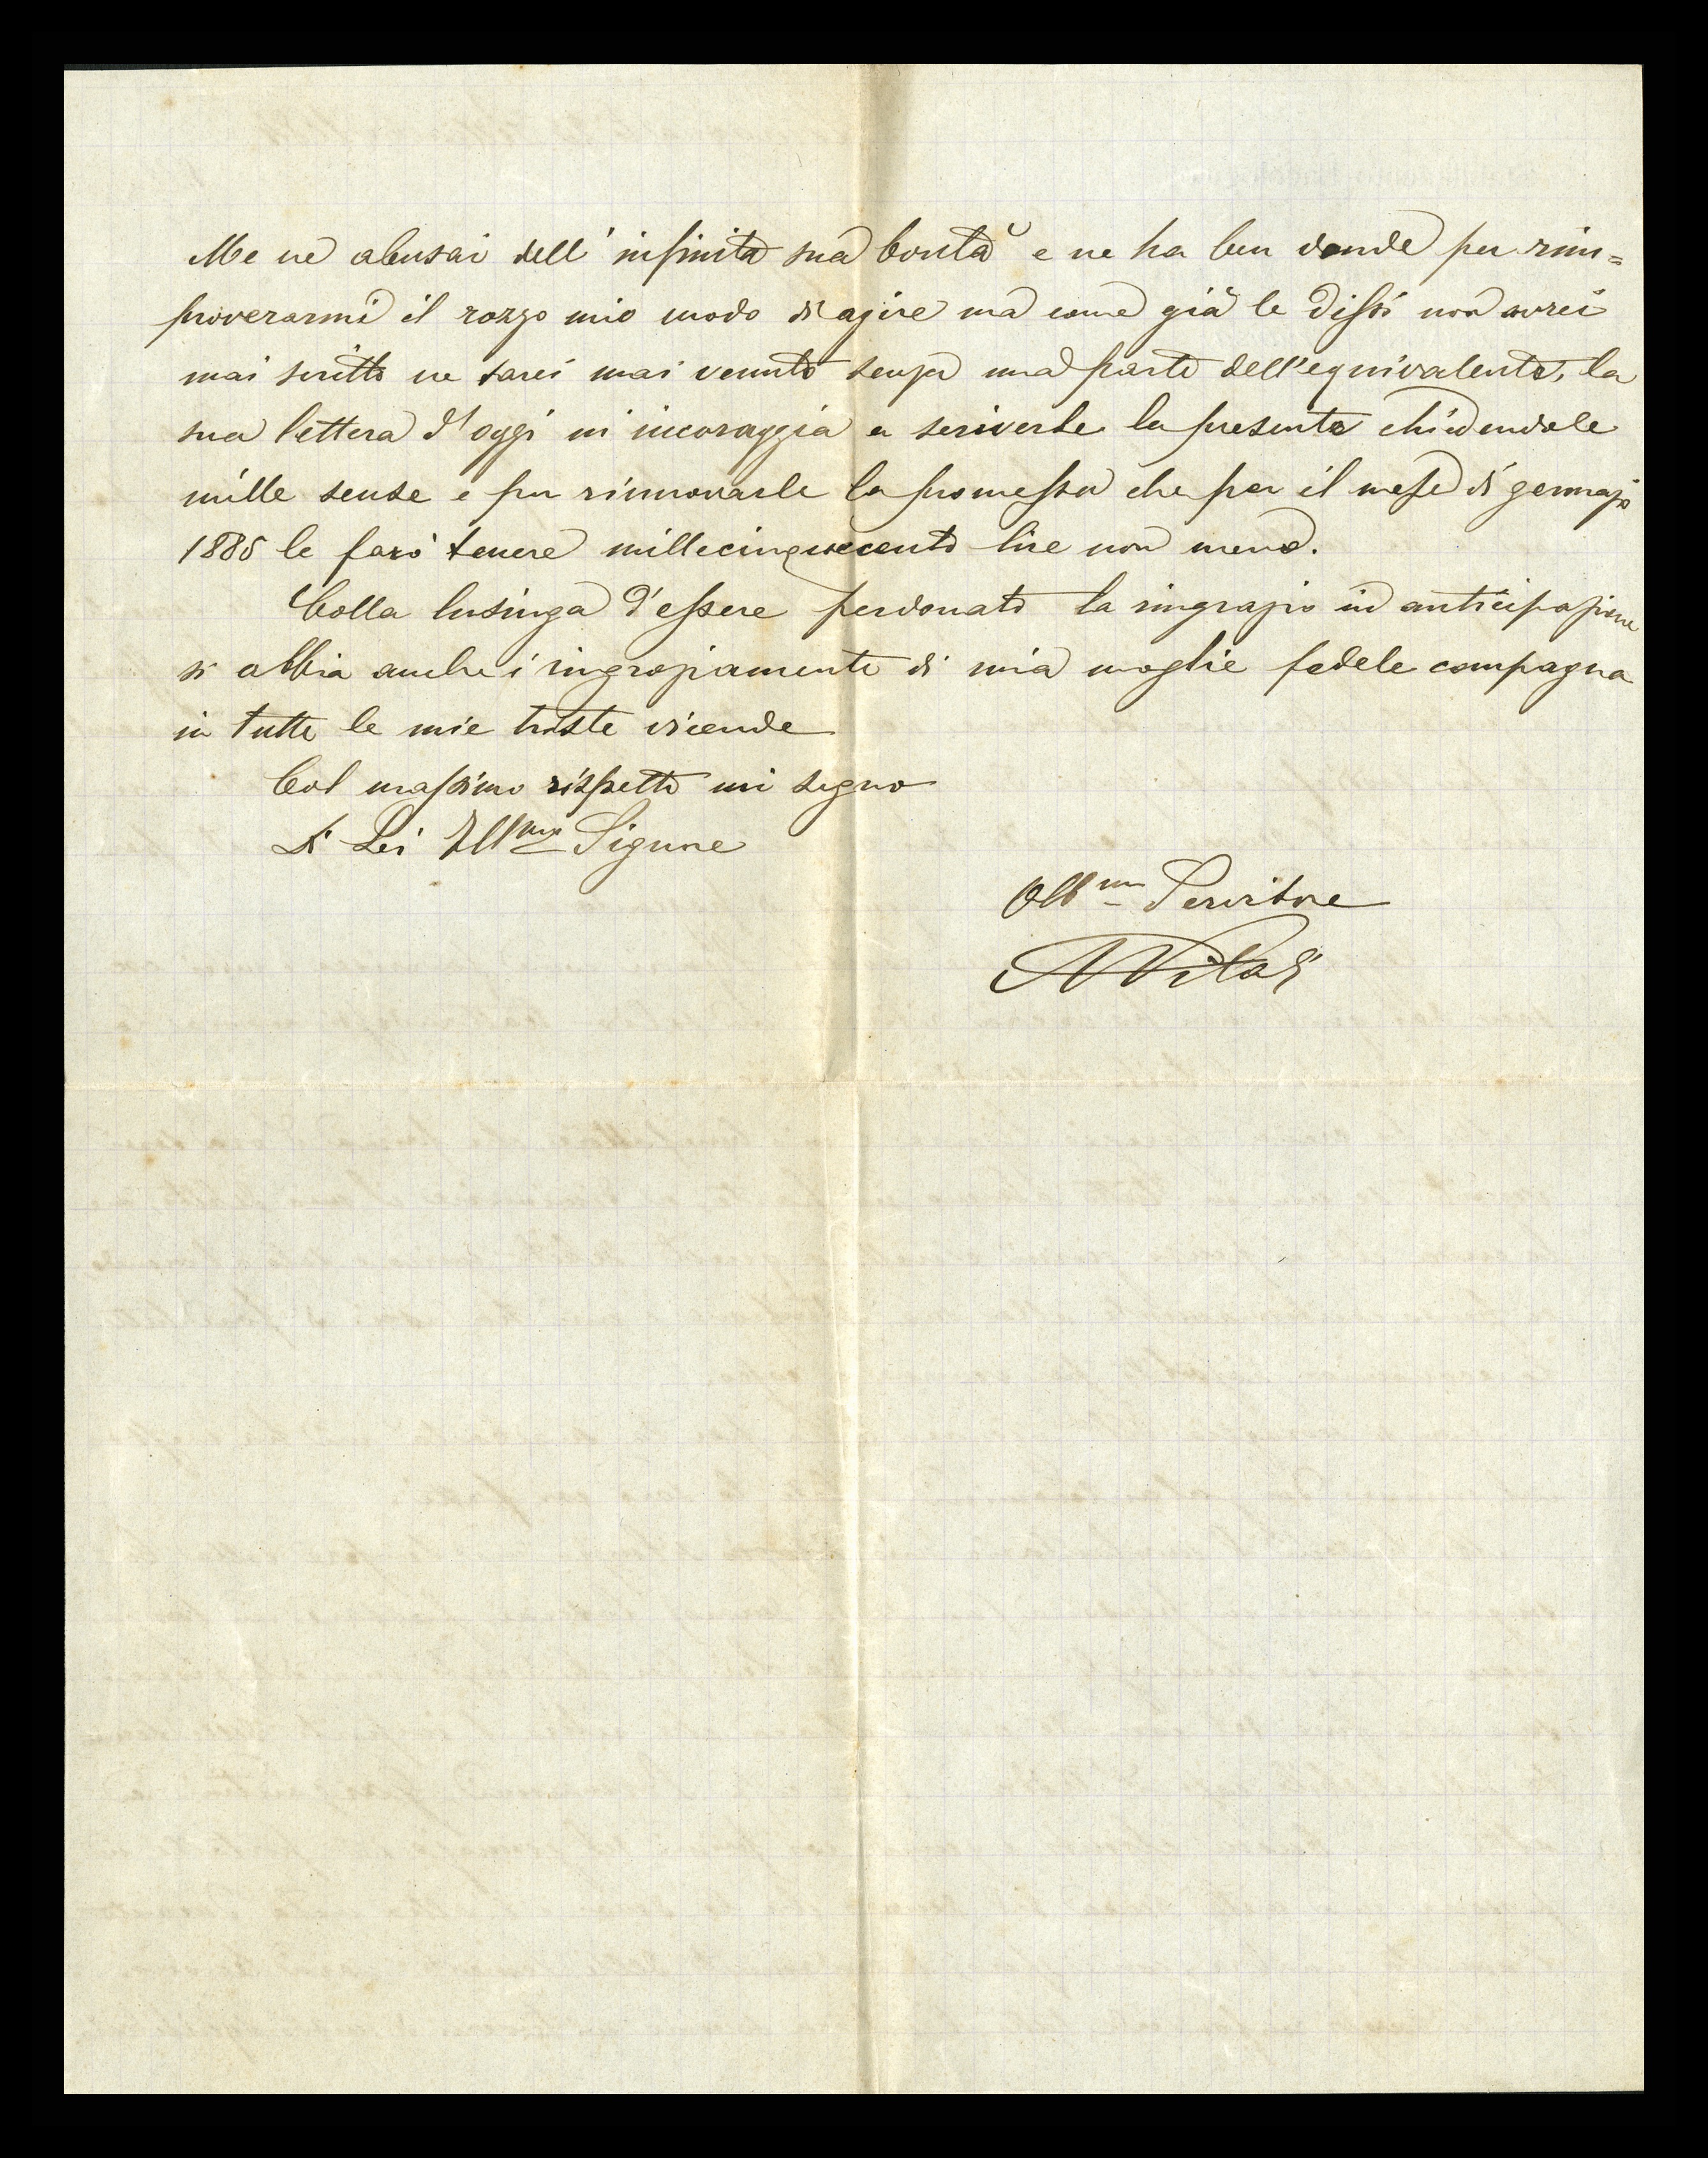 Me ne abusai dell'infinita sua bontà e ne ha ben donde per rim=
proverarmi il rozzo mio modo di agire ma come già le dissi non avrei
mai scritto ne sarei mai venuto senza una parte dell'equivalente, la
sua lettera d'oggi mi incoraggia a scriverle la presente chiedendole
mille scuse e per rinnovarle la promessa che per il mese di gennajo
1885 le farò tenere millecinquecento lire non meno.
Colla lusinga d'essere perdonato la ringrazio in anticipazione
si abbia anche i ringraziamenti di mia moglie fedele compagna
in tutte le mie triste vicende
Col massimo rispetto mi segno
Di Lei Ill^mo Signore
Obb^mo Servitore
A Vitali